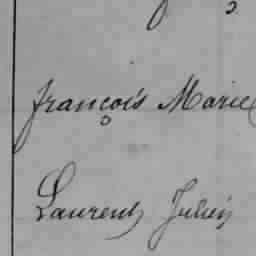 françois Marie
Laurent Julien